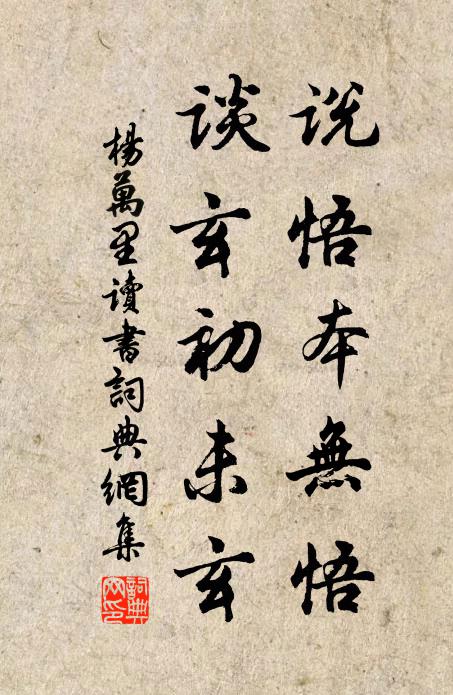 说悟本無悟
谈玄初未玄
楊萬里讀書詞典網集
詞典網印